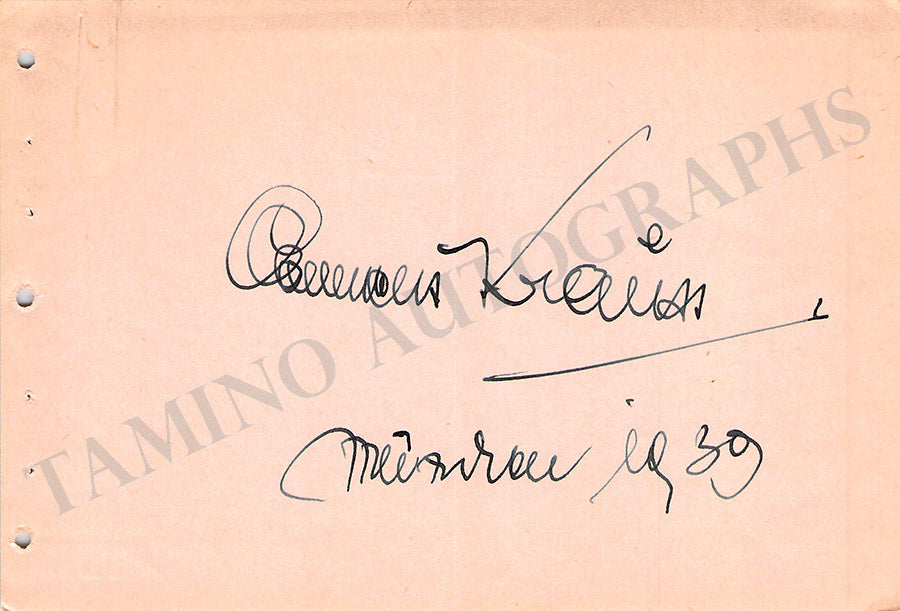 Clemens Krauss
München 1939
TAMINO AUTOGRAPHS